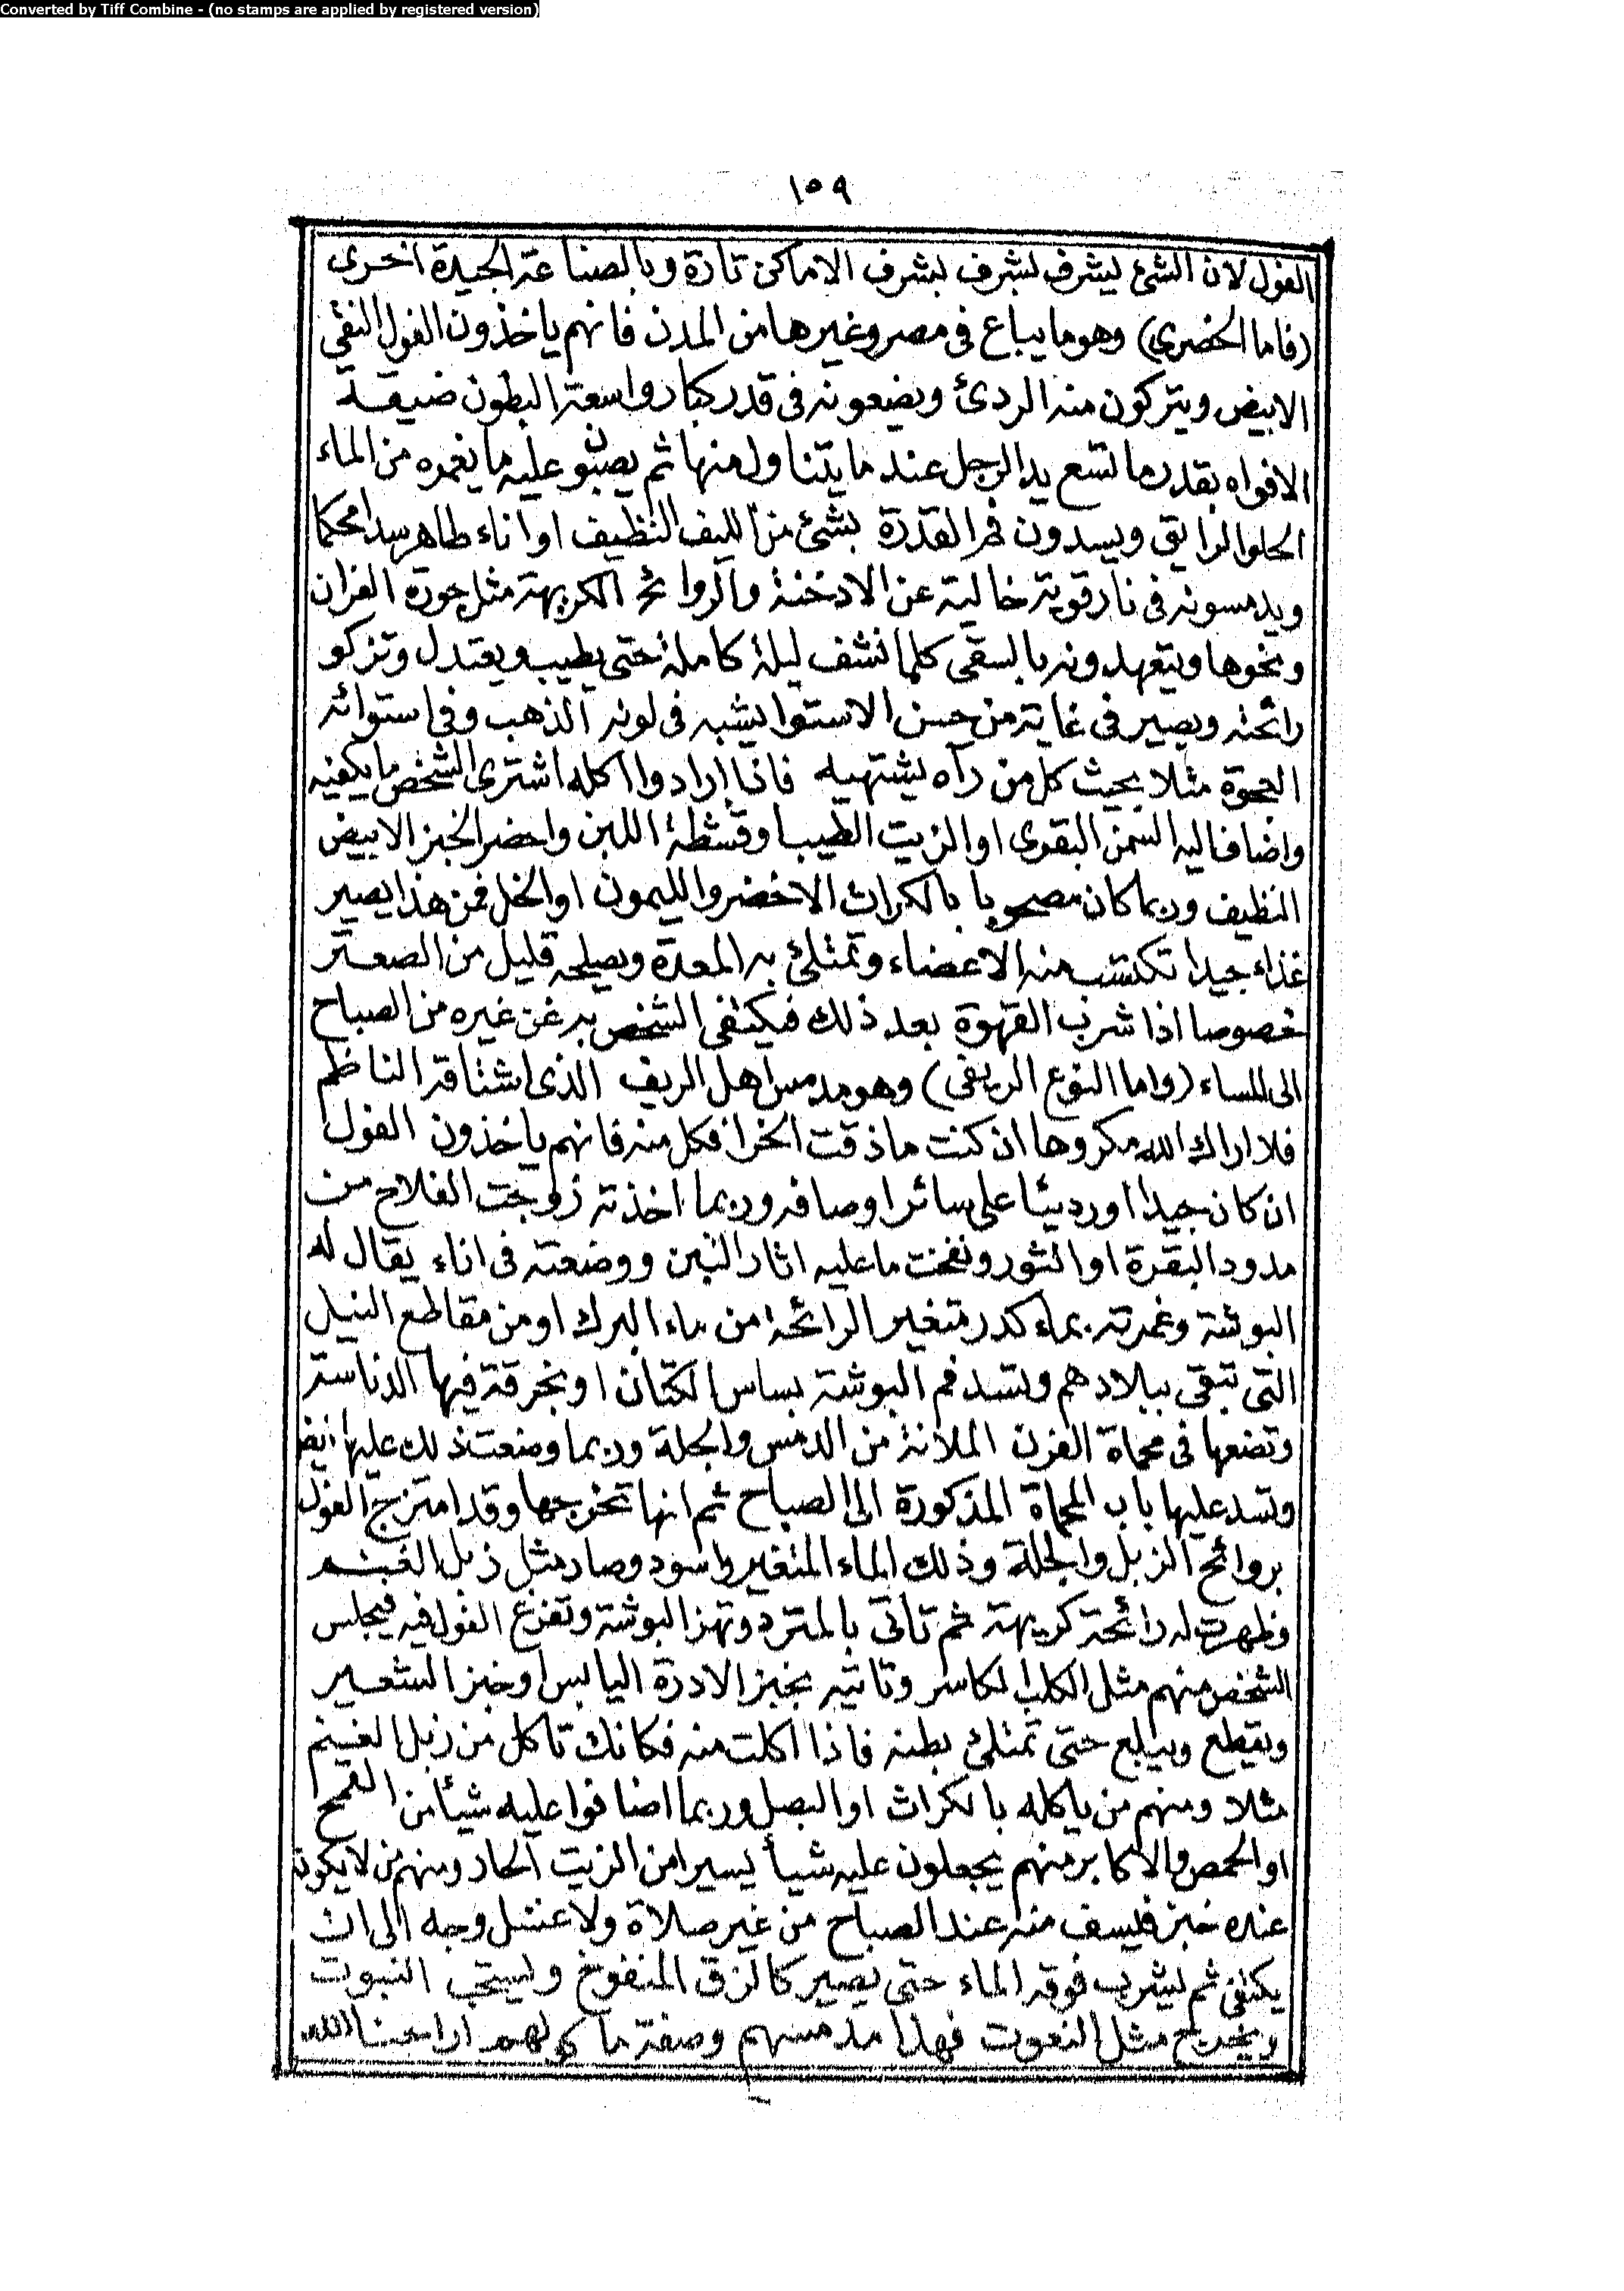 Converted by Tiff Combine - (no stamps are applied by registered version)
١٥٩
الفول لان الشئ ليشرف بشرف بشرف الاماكن تارة وبالصناعة الجيدة اخرى
(فاما الحضرى) وهو ما يباع فى مصر وغيرها من المدن فانهم ياخذون الفول النقي
الابيض ويتركون منه الردئ ويضعونه فى قدر كبار واسعة البطون ضيقة
الافواه بقدر ما تسع يد الرجل عند ما يتناول منها ثم يصبون عليه ما يغمره من الماء
الحلو الرايق ويسدون فم القدرة بشئ من الليف النظيف او اناء طاهر سدا محكما
ويدمسونه فى نار قوية خالية عن الادخنة والروائح الكريهة مثل جورة الفران
ونحوها ويتعهدونه بالسقى كلما نشف ليلة كاملة حتى يطيب ويعتدل وتزكو
رائحته ويصير فى غاية من حسن الاستوا يشبه فى لونه الذهب وفى استوائه
العجوة مثلا بحيث كل من رآه يشتهيه فاذا ارادوا اكله اشترى الشخص ما يكفيه
واضاف اليه السمن البقرى او الزيت الطيب او قشطة اللبن واحضر الخبز الابيض
النظيف وربما كان مصحوبا بالكراث الاخضر والليمون او الخل فمن هذا يصير
غذاء جيدا تكتسب منه الاعضاء وتمتلئ به المعدة ويصلحه قليل من الصعتر
خصوصا اذا شرب القهوة بعد ذلك فيكتفى الشخص به عن غيره من الصباح
الى المساء (واما النوع الريفى) وهو مدمس اهل الريف الذى اشتاقه الناظم
فلا اراك الله مكروها ان كنت ما ذقت الخرا فكل منه فانهم ياخذون الفول
ان كان جيدا او رديئا على سائر اوصافه وربما اخذته زوجت الفلاح من
مدود البقرة او الثور ونفخت ما عليه اثار التبن ووضعته فى اناء يقال له
البوشة وغمرته بماء كدر متغير الرائحة من ماء البرك او من مقاطع النيل
التى تبقى ببلادهم وتسد فم البوشة بساس الكتان او بخرقة فيها الدناسة
وتضعها فى محماة الفرن الملانة من الدمس والجلة وربما وضعت ذلك عليها ايضا
وتسد عليها باب المحماة المذكورة الى الصباح ثم انها تخرجها وقد امتزج الفول
بروائح الزبل والجلة وذلك الماء المتغير واسود وصار مثل زبل الغنم
وظهرت له رائحة كريهة ثم تاتى بالمترد وتهز البوشة وتفرغ الفول فيه فيجلس
الشخص منهم مثل الكلب الكاسر وتاتيه بخبز الادرة اليابس او خبز الشعير
ويقطع ويبلع حتى تمتلئ بطنه فاذا اكلت منه فكانك تاكل من زبل الغنم
مثلا ومنهم من ياكله بالكراث او البصل وربما اضافوا عليه شيأ من القمح
او الحمص والاكابر منهم يجعلون عليه شيأ يسيرا من الزيت الحار ومنهم من لا يكون
عنده خبز فيسف منه عند الصباح من غير صلاة ولا غسل وجه الى ان
يكتفى ثم ليشرب فوقه الماء حتى يصير كالزق المنفوخ وليسحب النبوت
ويخرج مثل النعوت فهذا مدمسهم وصفة ماكولهم اراحنا الله